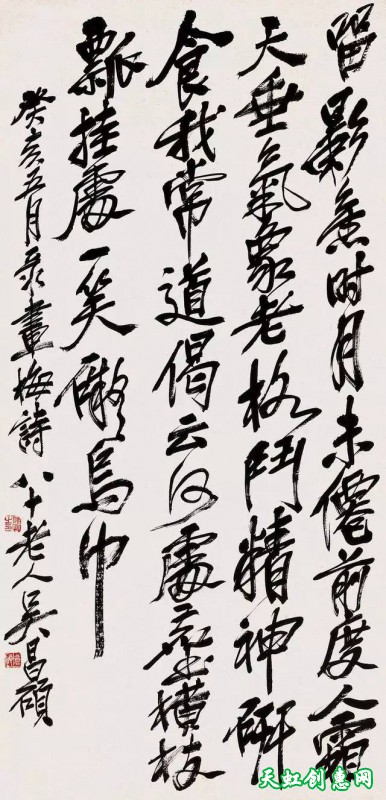 留影舊时月未僊前度人霜
天垂氣象老格鬥精神
食我常道偈云何處塵橫枝
瓢挂處一笑烏巾
癸亥五月录畫梅詩 八十老人吳昌碩
天虹创意网